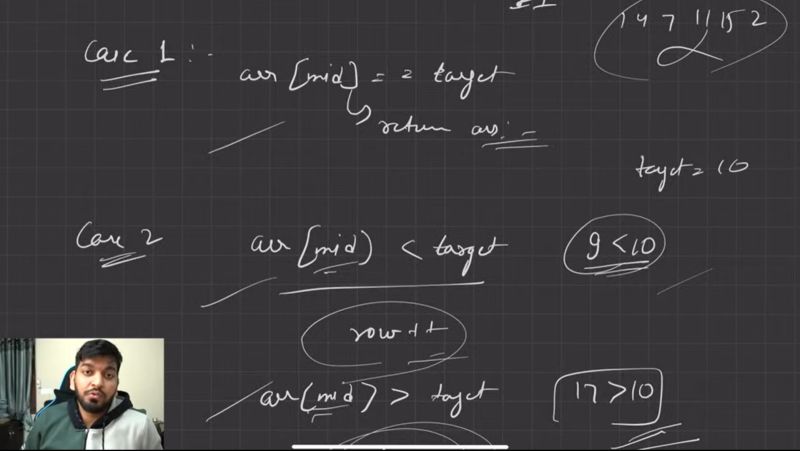 1 4 7 11 15 2
Case 1 :-
arr [mid] = = target
return ans; -
target = 10
Case 2
arr [mid) < target
9 < 10
row ++
arr [mid) > target
17 > 10